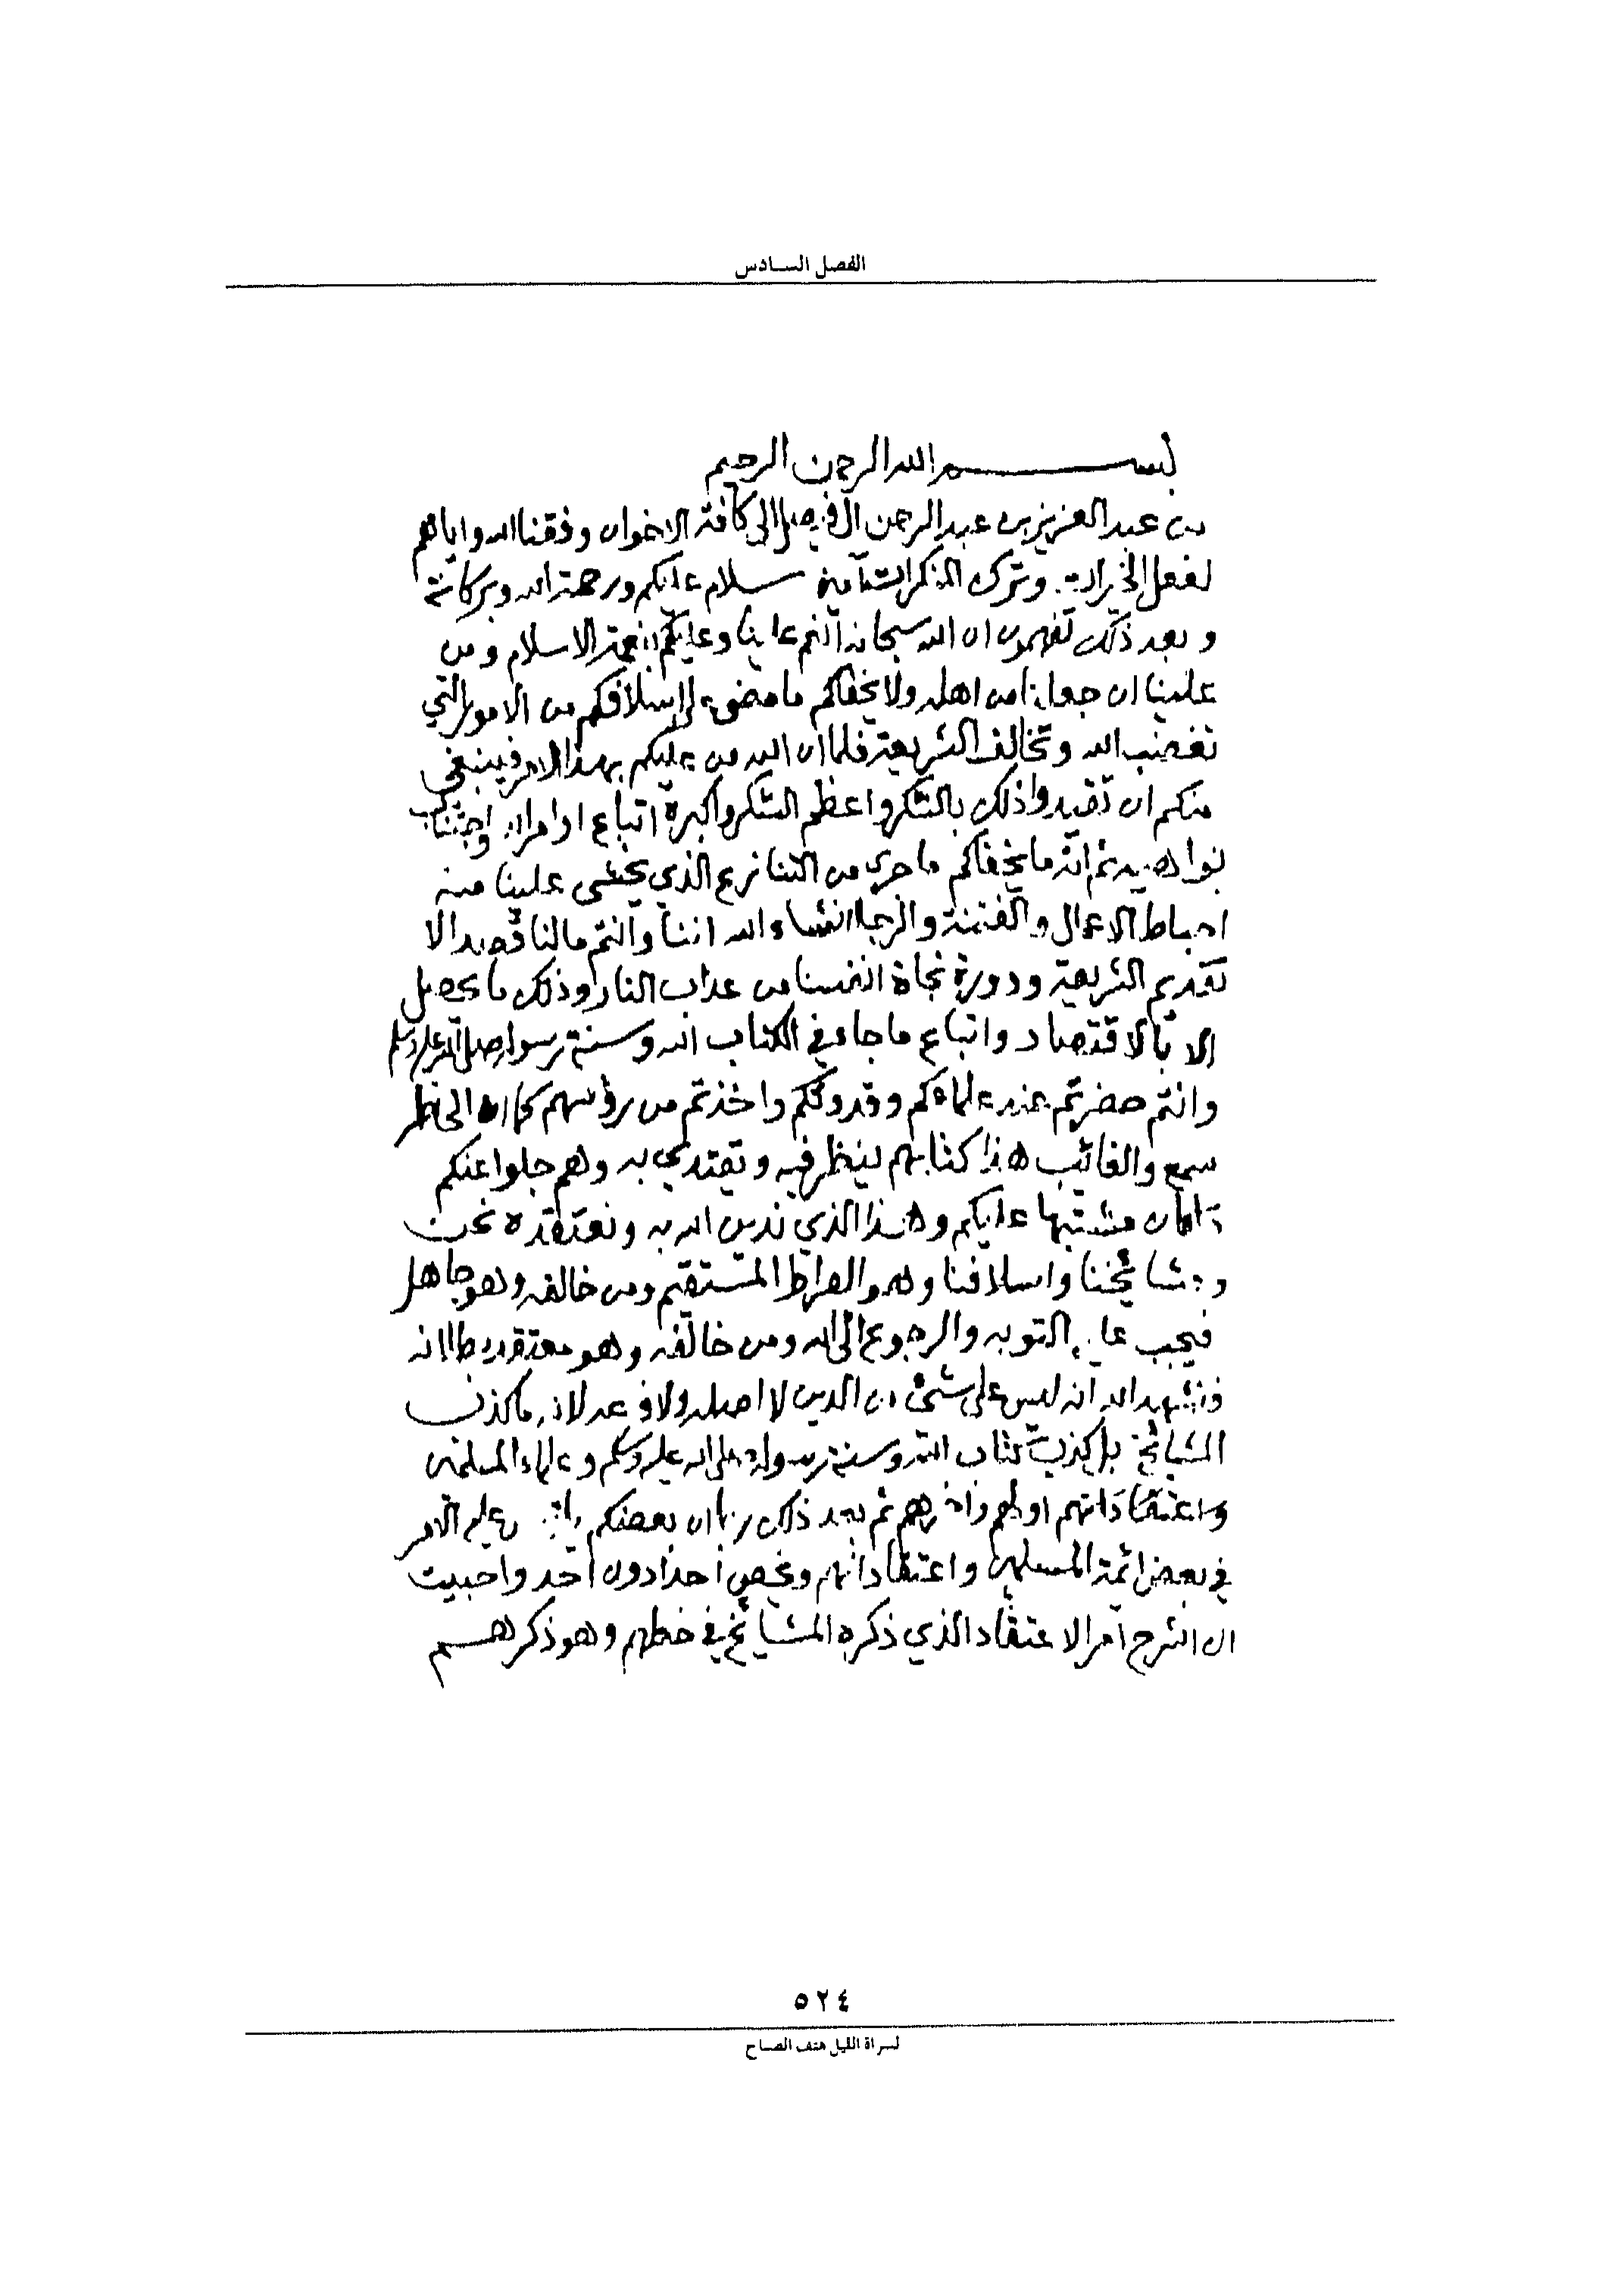 الفصل السادس
بسم الله الرحمن الرحيم
من عبد العزيز بن عبد الرحمن ال فيصل الى كافة الاخوان وفقنا الله واياهم
لفعل الخيرات وترك المنكرات آمين سلام عليكم ورحمة الله وبركاته
وبعد ذلك تفهمون ان الله سبحانه أنعم علينا وعليكم بنعمة الاسلام ومن
علينا ان جعلنا من اهله ولا يخفاكم ما مضى على اسلافكم من الامور التي
تغضب الله وتخالف الشريعة فلما ان الله من عليكم بهذا الامر فينبغي
منكم ان تقيدوا ذلك بالشكر واعظم الشكر واكبره اتباع اوامر الله واجتناب
نواهيه ثم انه ما يخفاكم ما جرى من التنازع الذي يخشى علينا منه
احباط الاعمال والفتنة والرجا انشاء الله اننا وانتم ما لنا قصد الا
تقديم الشريعة ودورة نجاة انفسنا من عذاب النار وذلك ما يحصل
الا بالاقتصاد واتباع ما جاء في الكتاب الله وسنة رسوله صلى الله عليه وسلم
وانتم حضرتم عند علماءكم وقدوتكم واخذتم من رؤسهم كما ان الى نظر
سمع والغائب هذا كتابهم ينظر فيه ويقتدي به وهم جلوا عنكم
ما كان مشتبها عليكم وهذا الذي ندين الله به ونعتقده نحن
ومشائخنا واسلافنا وهو الصراط المستقيم ومن خالفه وهو جاهل
فيجب عليه التوبه والرجوع الى الله ومن خالفه وهو معتقد بطلانه
فنشهد الله انه ليس على شئ من الدين لا اصله ولا فرعه لانه ما كذب
المشائخ بل كذب كتاب الله وسنة رسوله صلى الله عليه وسلم وعلماء المسلمين
واعتقاداتهم اولهم واخرهم ثم بعد ذلك ربما ان بعضكم عليه الامر
في بعض ائمة المسلمين واعتقاداتهم ويخص أحدا دون أحد واحببت
ان اشرح امر الاعتقاد الذي ذكره المشائخ في خطهم وهو ذكرهم
٥٢٤
لسراة الليل هتف الصباح